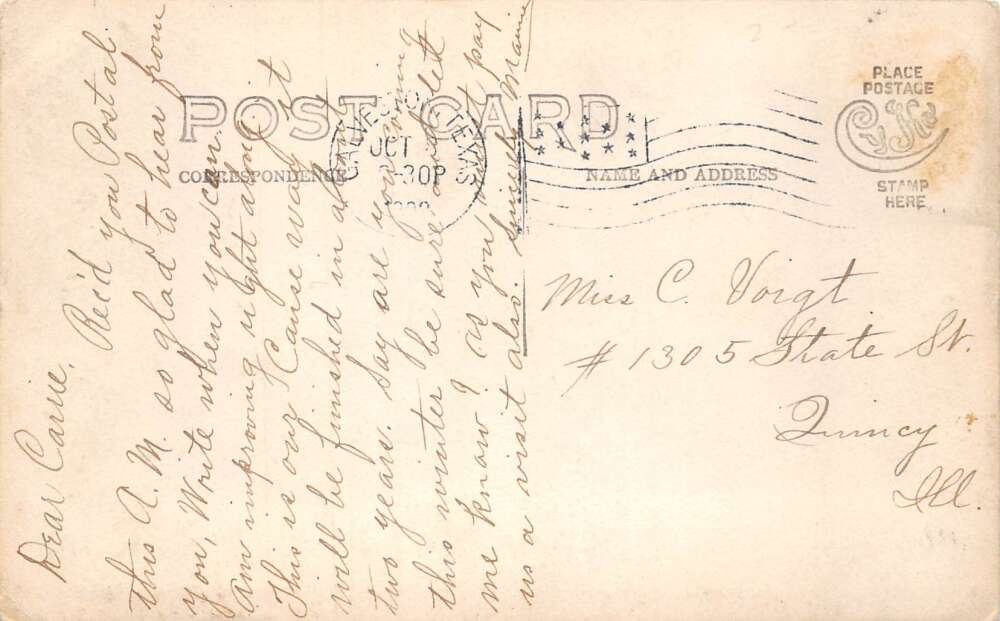 POST CARD
CORRESPONDENCE
NAME AND ADDRESS
PLACE
POSTAGE
STAMP
HERE
GALVESTON, TEXAS
OCT
-30P
Miss C. Voigt
# 1305 State St.
Quincy
Ill.
Dear Carrie,
Rec'd you Postal
this A. M. so glad to hear from
you, Write when you can.
am improving right along
This is our Cause way it
will be finished in about
two years. Say are you coming
this winter be sure and let
me know? as you must pay
us a visit also. Sincerely Mamie